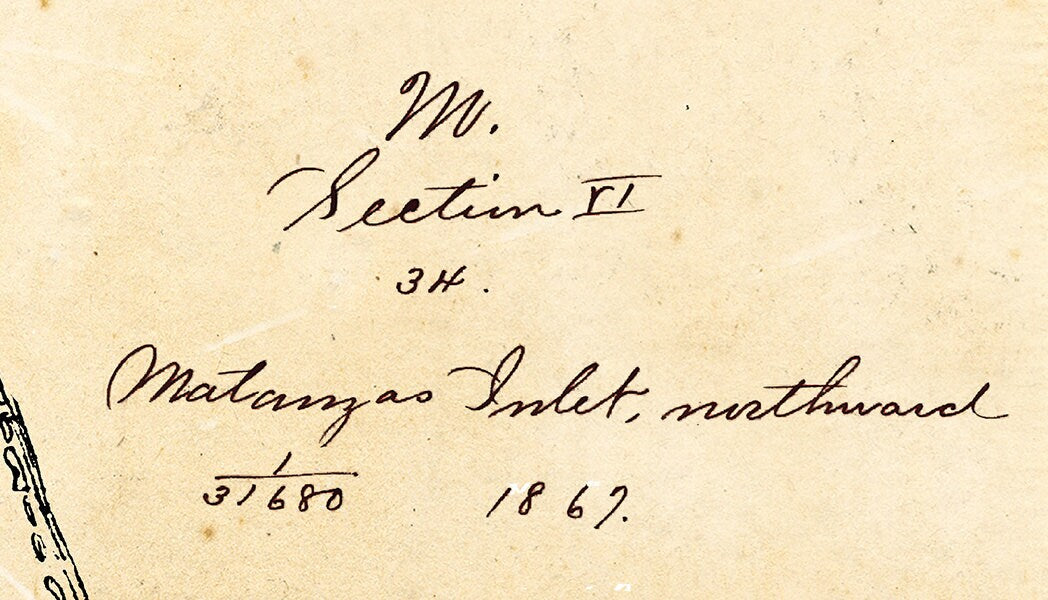 M.
Section VI
34.
Matanzas Inlet, northward
1/31680 1867.